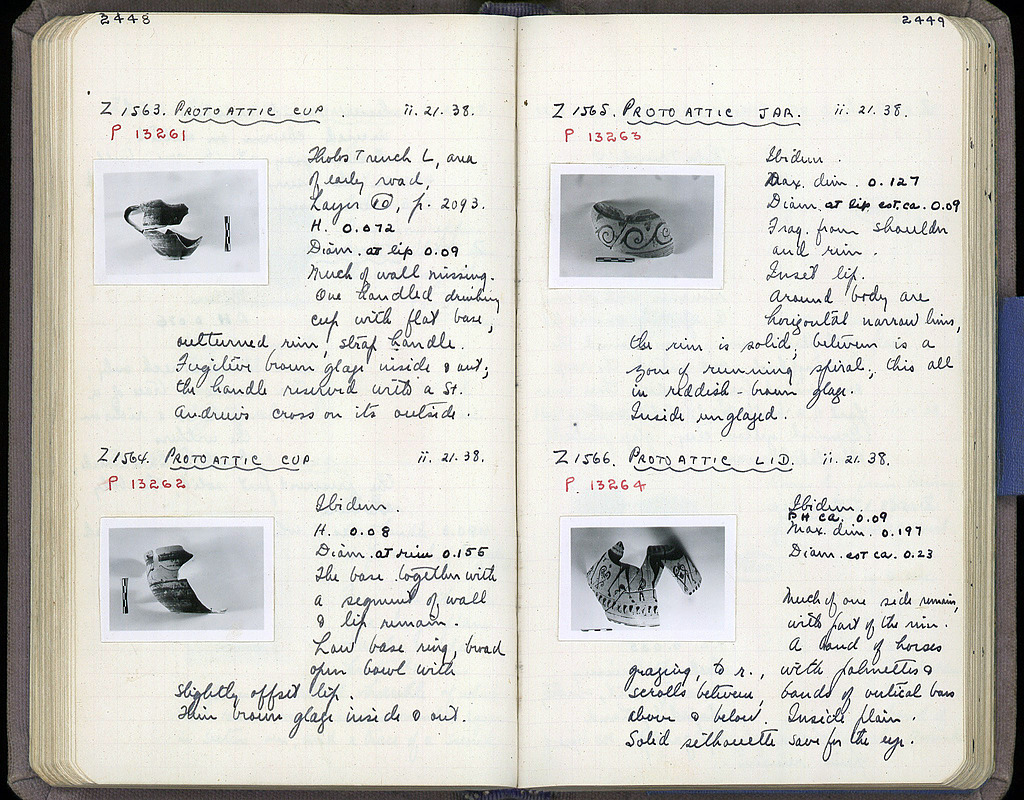 2448
Z 1563. PROTOATTIC CUP . ii. 21. 38.
P 13261
Tholos Trench L, area
of early road,
Layer 10, p. 2093.
H. 0.072
Diam. at lip 0.09
Much of wall missing.
One handled drinking
cup with flat base,
outturned rim, strap handle.
Fugitive brown glaze inside & out;
the handle reserved with a St.
Andrews cross on its outside.
Z 1564. PROTOATTIC CUP ii. 21. 38.
P 13262
Ibidem.
H. 0.08
Diam. at rim 0.155
The base together with
a segment of wall
& lip remain.
Low base ring, broad
open bowl with
slightly offset lip.
Thin brown glaze inside & out.
2449
Z 1565. PROTOATTIC JAR. ii. 21. 38.
P 13263
Ibidem.
Max. dim. 0.127
Diam. at lip est. ca. 0.09
Frag. from shoulder
and rim.
Inset lip.
Around body are
horizontal narrow lines,
the rim is solid; between is a
zone of running spiral; this all
in reddish-brown glaze.
Inside unglazed.
Z 1566. PROTOATTIC LID. ii. 21. 38.
P. 13264
Ibidem.
PH ca. 0.09
Max. dim. 0.197
Diam. est ca. 0.23
Much of one side remains,
with part of the rim.
A band of horses
grazing, to r., with palmettes &
scrolls between, bands of vertical bars
above & below. Inside plain.
Solid silhouette save for the eye.